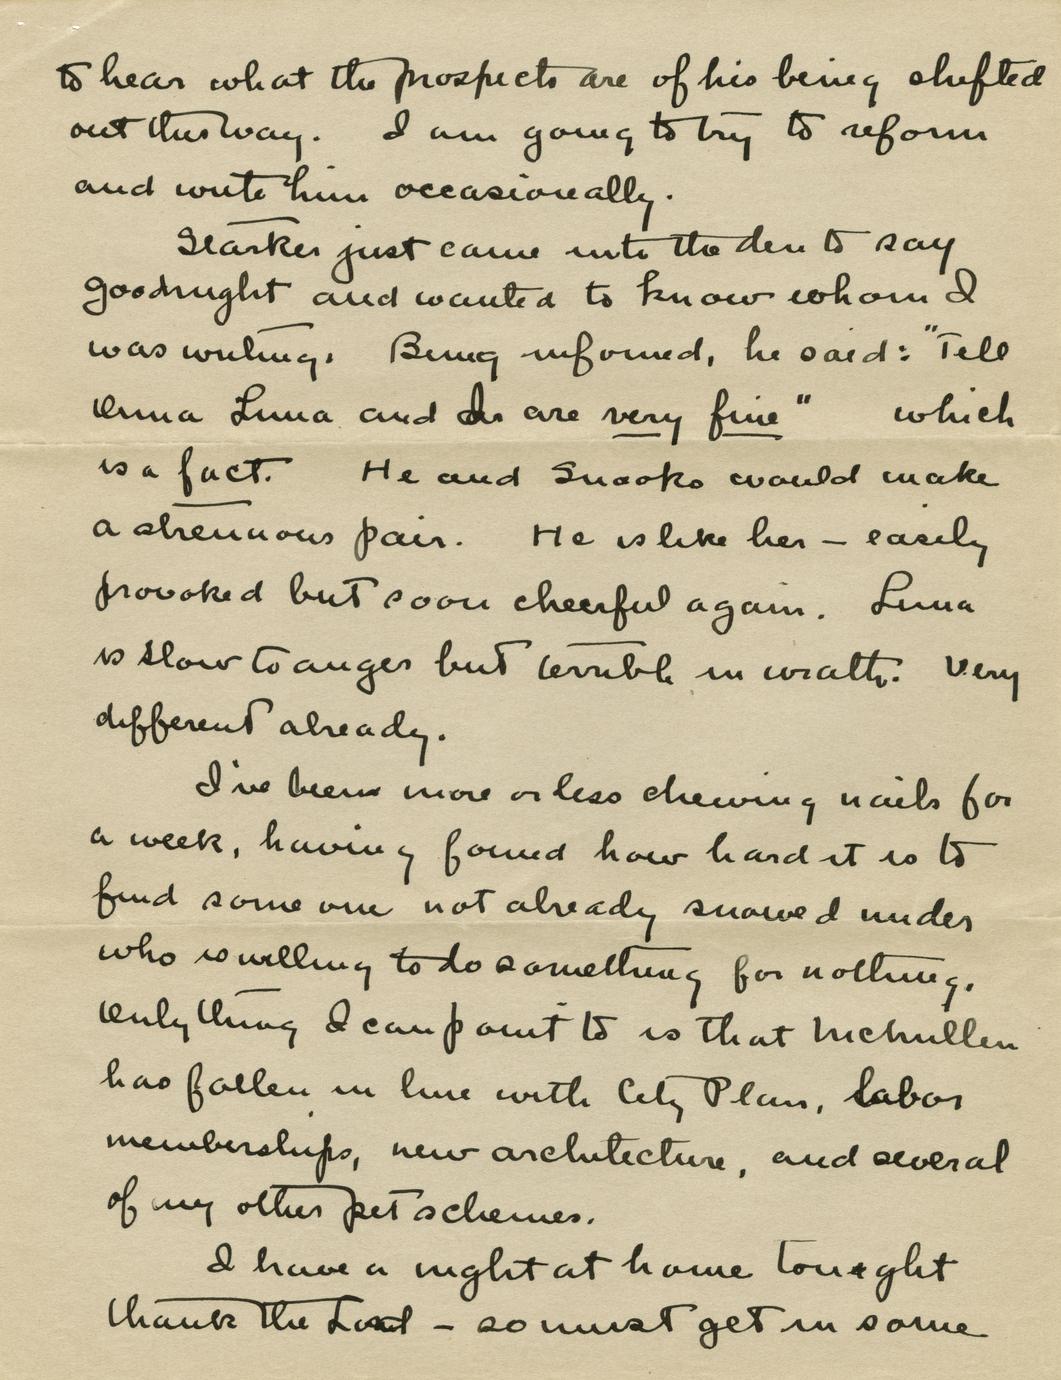 to hear what the prospects are of his being shifted
out this way. I am going to try to reform
and write him occasionally.
Starker just came into the den to say
goodnight and wanted to know whom I
was writing. Being informed, he said: "Tell
Oma Luna and I are very fine" which
is a fact. He and Snooks would make
a strenuous pair. He is like her – easily
provoked but soon cheerful again. Luna
is slow to anger but terrible in wrath. Very
different already.
I've been more or less chewing nails for
a week, having found how hard it is to
find some one not already snowed under
who is willing to do something for nothing.
Only thing I can point to is that McMullen
has fallen in line with City Plan, labor
memberships, new architecture, and several
of my other pet schemes.
I have a night at home tonight
thank the Lord – so must get in some